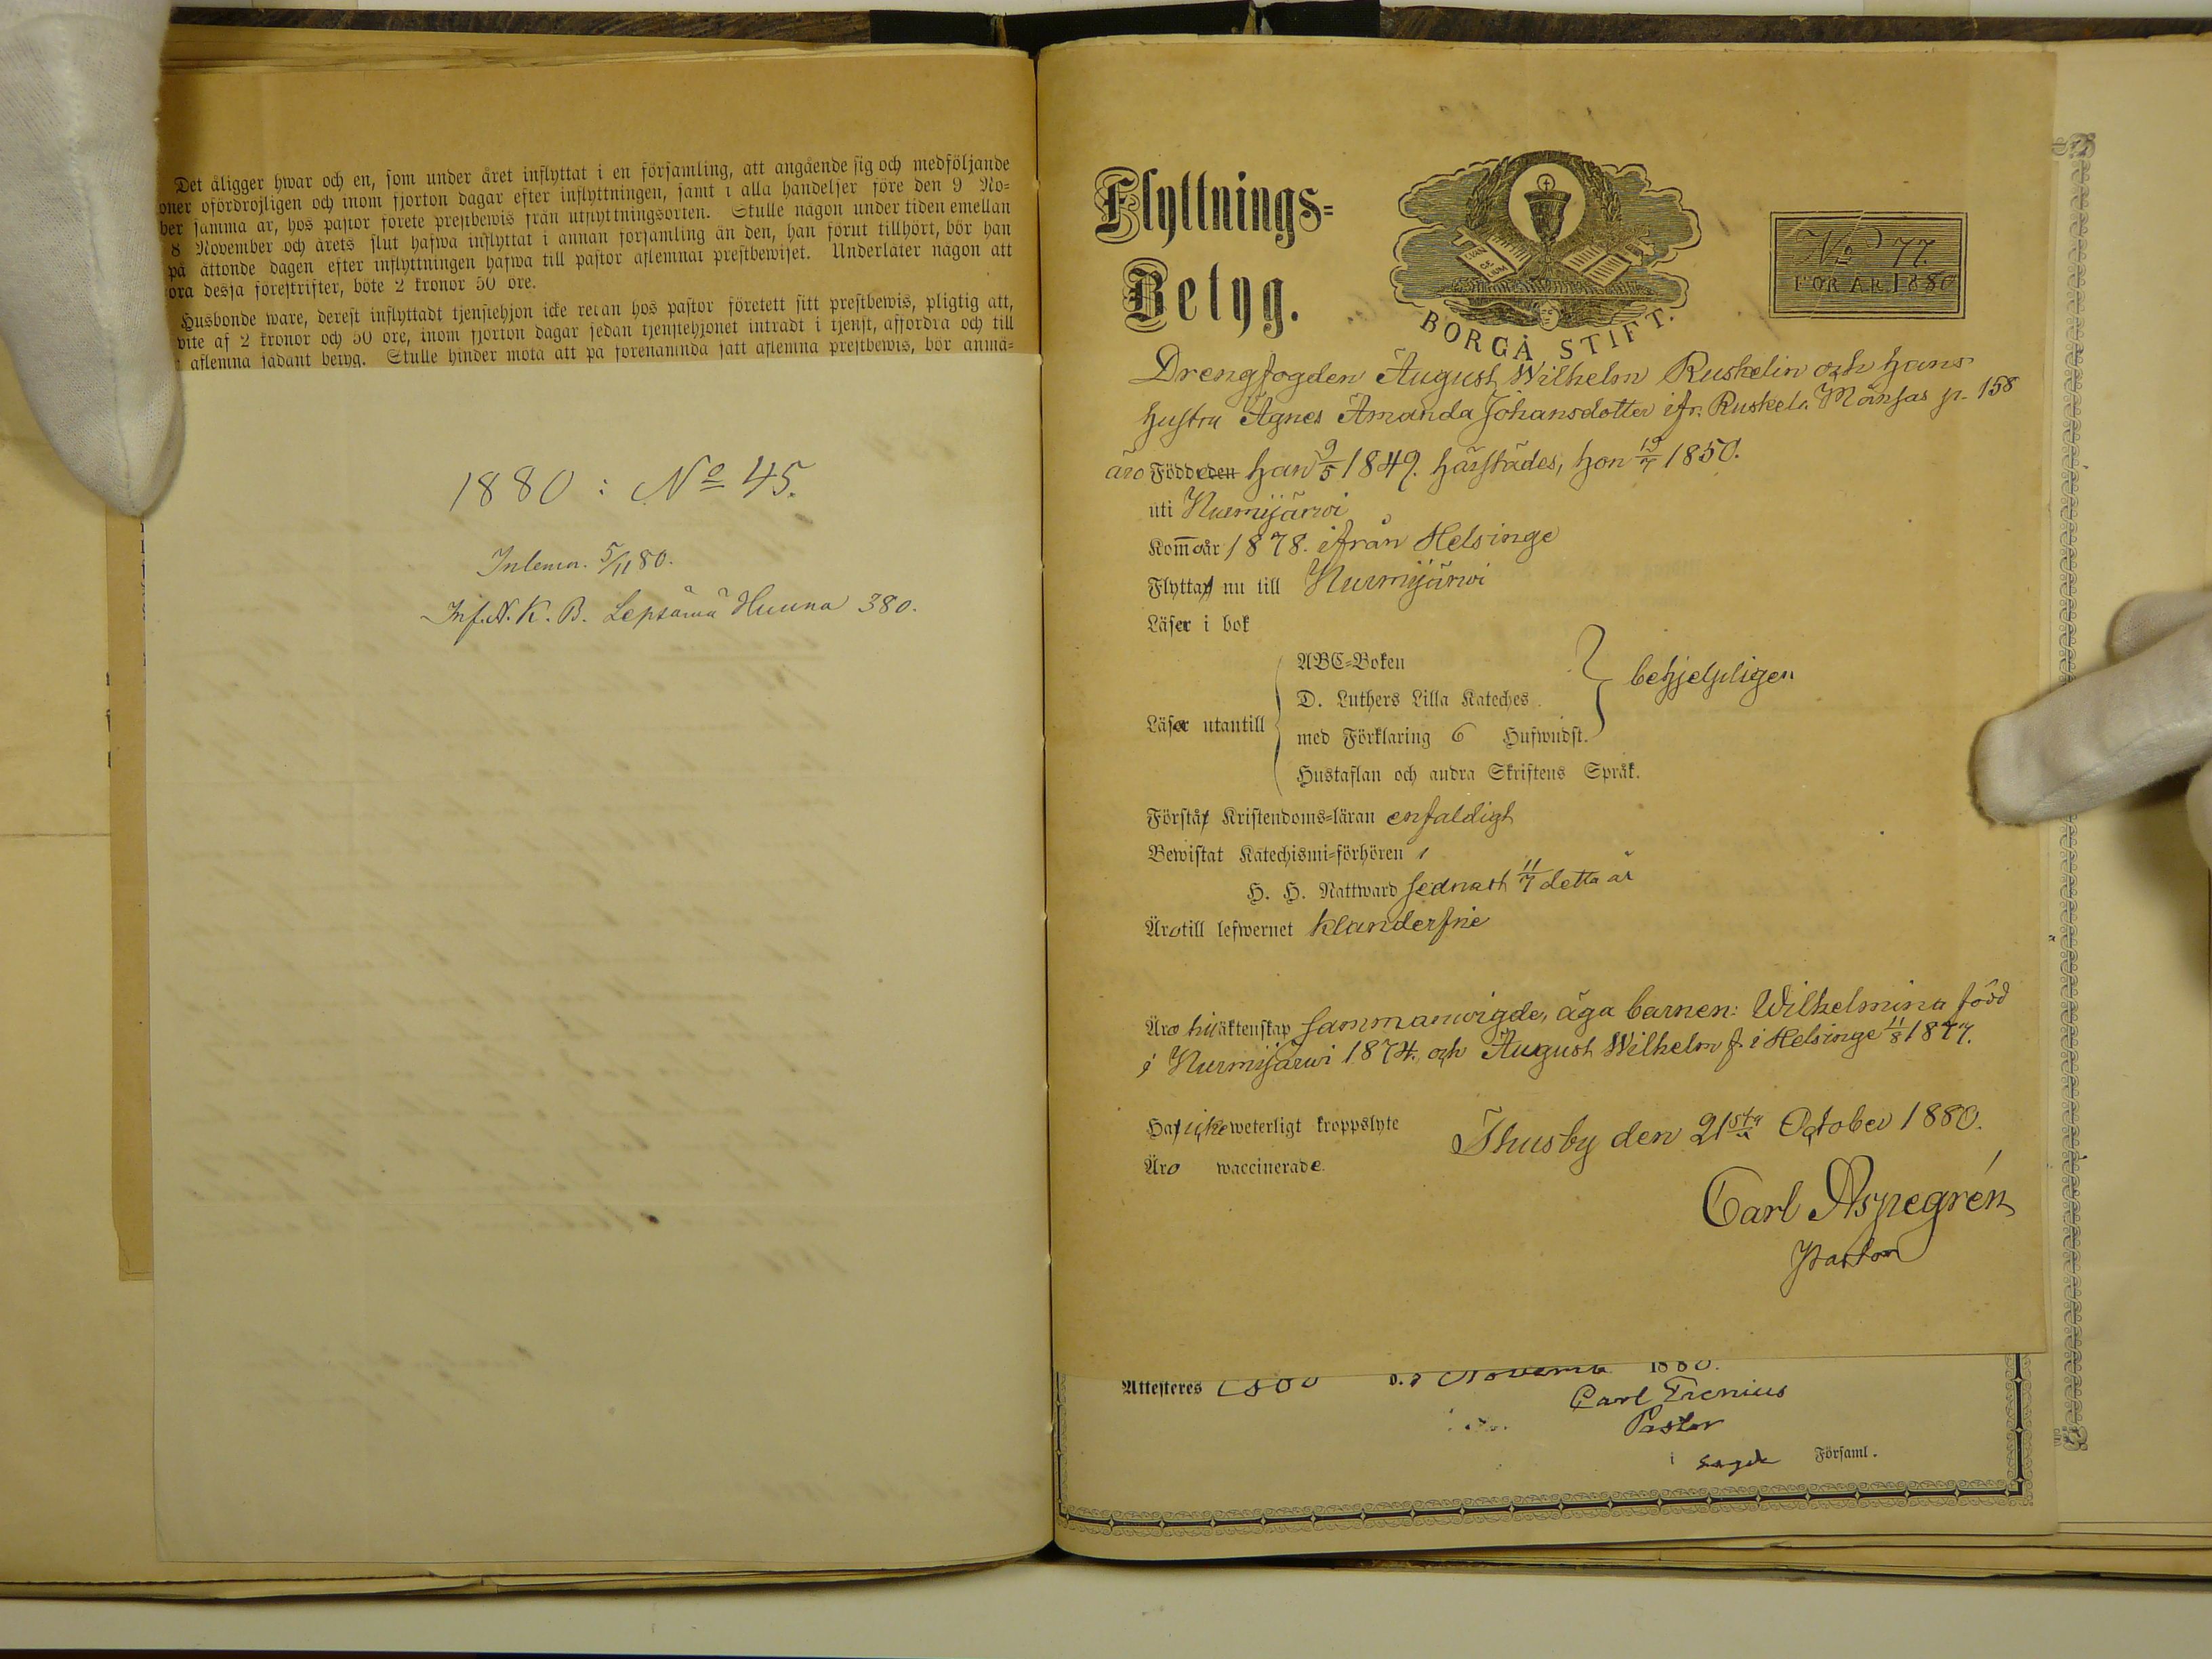 Det åligger hwar och en, som under året inflyttat i en församling, att angående sig och medföljande
oner ofördröjligen och inom fjorton dagar efter inflyttningen, samt i alla händelser före den 9 No=
ber samma år, hos pastor förete prestbewis från utflyttningsorten. Skulle någon under tiden emellan
8 November och årets slut hafwa inflyttat i annan församling än den, han förut tillhört, bör han
på åttonde dagen efter inflyttningen hafwa till pastor aflemnat prestbewiset. Underlåter någon att
öra dessa föreskrifter, böte 2 kronor 50 öre.
Husbonde ware, derest inflyttadt tjenstehjon icke redan hos pastor företett sitt prestbewis, pligtig att,
vite af 2 kronor och 50 öre, inom fjorton dagar sedan tjenstehjonet inträdt i tjenst, affordra och till
aflemna sådant betyg. Skulle hinder möta att på förenämnda sätt aflemna prestbewis, bör anmä=
1880 : No 45.
Inlemn. 5/11 80.
Inf. N. K. B. Lepsämä Huuna 380.
Flyttnings=
Betyg.
EVAN
GE
LIUM
BORGÅ STIFT.
No 77.
FÖR ÅR 1880
Drengfogden August Wilhelm Ruskelin och hans
hustru Agnes Amanda Johansdotter ifr. Ruskela Mänsas p. 158
äro Födde den han 9/5 1849. härstädes, hon 19/7 1850.
uti Nurmijärwi
Kom̄o år 1878. ifrån Helsinge
Flytta nu till Nurmijärwi
Läser i bok
ABC=Boken
D. Luthers Lilla Kateches
Läsa utantill
med Förklaring 6 Hufwudst.
behjelpligen
Hustaflan och andra Skriftens Språk.
Förstå Kristendoms=läran enfaldigt
Bewistat Katechismi=förhören
H. H. Nattward sednast 11/7 detta år
Äro till lefwernet klanderfrie
Äro hit äktenskap sammanwigde, äga barnen: Wilhelmina född
i Nurmijärwi 1874. och August Wilhelm f. i Helsinge 11/8 1877.
Haf icke weterligt kroppslyte
Thusby den 21sta October 1880.
Äro waccinerade.
Carl Aspegrén
Pastor
Attesteres Esbo d. Novemb 1880.
Carl
Pastor
i sagde Församl.